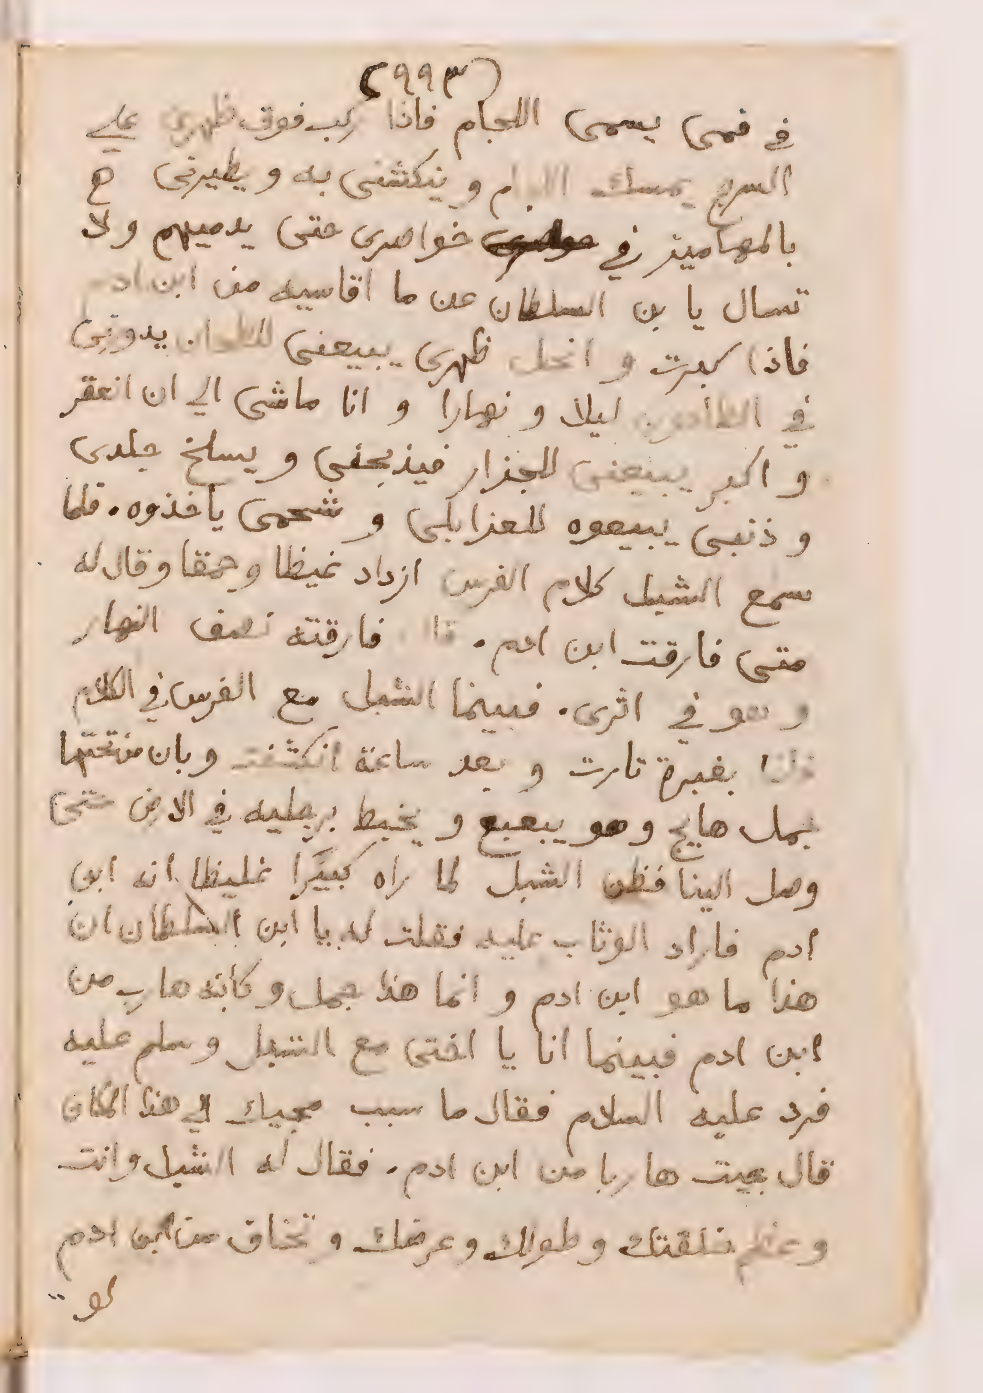 (٩٩٣)
في فمى يسمى اللجام فاذا ركب فوق ظهري علي
السرج يمسك اللجام و ينكشنى به و يطيرنى ج
بالمهاميز في خواصرى حتى يدميهم ولا
تسال يا بن السلطان عن ما اقاسيه من ابن ادم
فاذا كبرت و انحل ظهرى يبيعنى للطحان يدورنى
في الطاحون ليلا و نهارا و انا ماشى الي ان انعقر
و اكبر يبيعنى للجزار فيذبحنى و يسلخ جلدى
و ذنبى يبيعوه للغرابلى و شحمى ياخذوه. فلما
سمع الشبل كلام الفرس ازداد غيظا وحمقا وقال له
متى فارقت ابن ادم. قال فارقته نصف النهار
و هو في اثرى. فبينما الشبل مع الفرس في الكلام
فاذا بغبرة تارت و بعد ساعة انكشفت وبان من تحتها
جمل هايج وهو يبعبع و يخبط برجليه في الارض حتى
وصل الينا فظن الشبل لما راه كبيرا غليظا انه ابن
ادم فاراد الوثاب عليه فقلت له يا ابن السلطان ان
هذا ما هو ابن ادم و انما هذا جمل و كانه هارب من
ابن ادم فبينما انا يا اختى مع الشبل و سلم عليه
فرد عليه السلام فقال ما سبب مجيك الي هذا المكان
قال جيت هاربا من ابن ادم. فقال له الشبل وانت
و عظم خلقتك و طولك و عرضك و تخاف من ابن ادم
لو